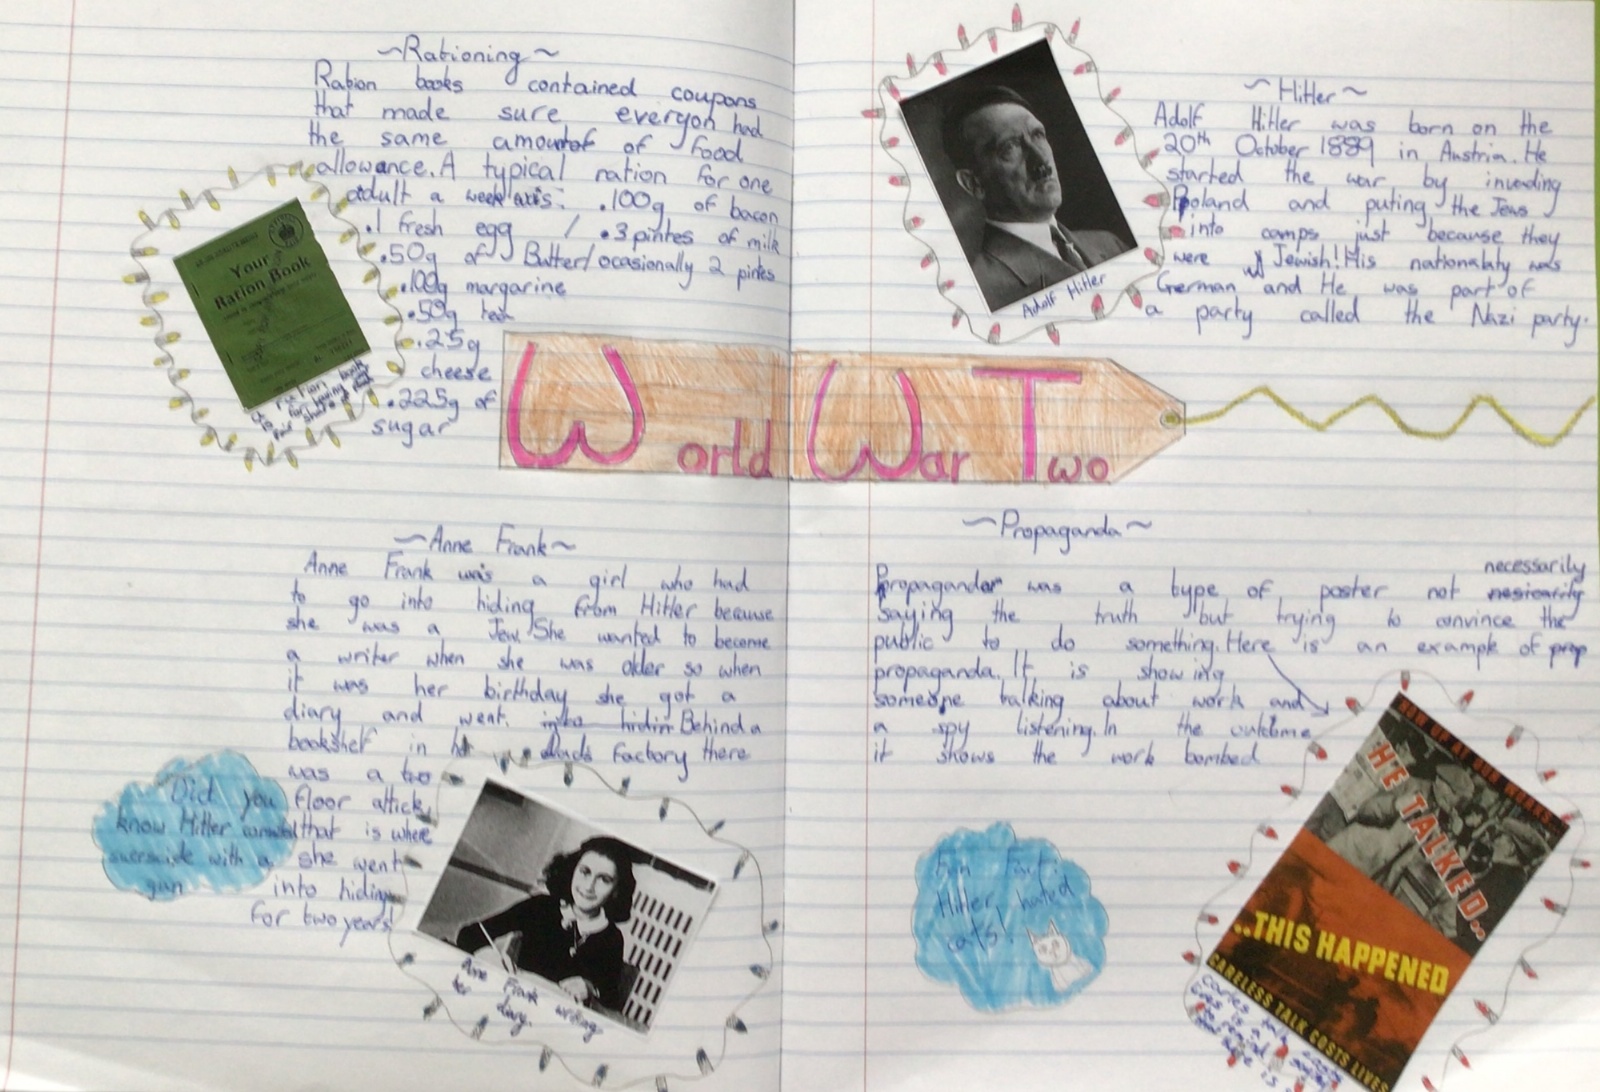 ~Rationing~
Ration books contained coupons
that made sure everyon had
the same amountof of food
allowance. A typical ration for one
adult a week was: .100g of bacon
.1 fresh egg / .3 pintes of milk
.50g of Butter/ocasionally 2 pintes
.100g margarine
.50g tea
.25g
cheese
.225g of
sugar
Your
Ration Book
~Hitler~
Adolf Hitler was born on the
20th October 1889 in Austria. He
started the war by invading
Poland and puting the Jews
into camps just because they
were Jewish! His nationalaty was
German and He was part of
a party called the Nazi party.
Adolf Hitler
World War Two
~Anne Frank~
Anne Frank was a girl who had
to go into hiding from Hitler because
she was a Jew. She wanted to become
a writer when she was older so when
it was her birthday she got a
diary and went into hidin Behind a
bookshelf in her Dads Factory there
was a two
floor attick
that is where
she went
into hiding
for two years
Did you
know Hitler
with a
gun
Anne Frank writing
her diary.
~Propaganda~
necessarily
Propagandar was a type of poster not nesicarity
saying the truth but trying to convince the
public to do something. Here is an example of prop
propaganda. It is showing
someone talking about work and
a spy listening. In the outcome
it shows the work bombed
Fun fact:
Hitler hated
cats!
HE TALKED..
..THIS HAPPENED
CARELESS TALK COSTS LIVES